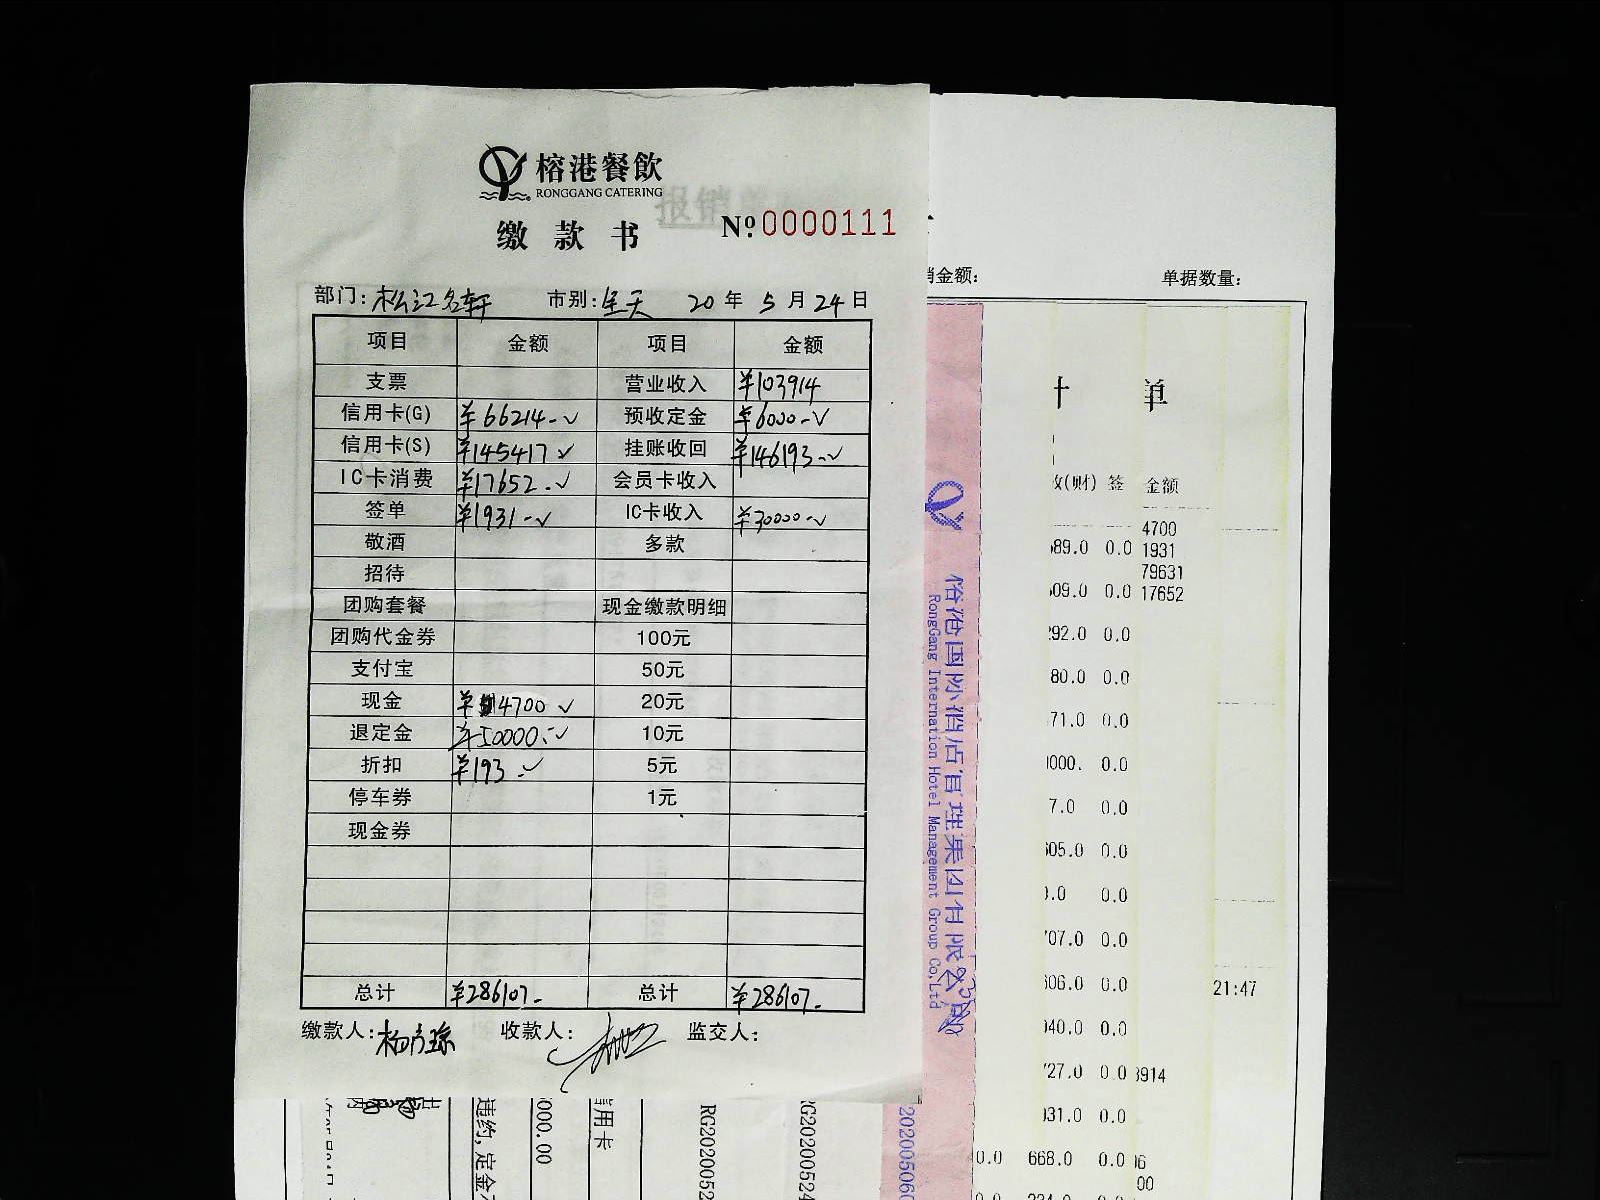 榕港餐飲
RONGGANG CATERING
报销
缴款书 Nº 0000111
部门: 松江名轩 市别: 全天 20年5月24日
项目 金额 项目 金额
支票 营业收入 ¥103914
信用卡(G) ¥66214- 预收定金 ¥6000-
信用卡(S) ¥145417 挂账收回 ¥146193-
IC卡消费 ¥17652- 会员卡收入
签单 ¥1931- IC卡收入 ¥30000-
敬酒 多款
招待
团购套餐 现金缴款明细
团购代金券 100元
支付宝 50元
现金 ¥4700 20元
退定金 ¥50000- 10元
折扣 ¥193- 5元
停车券 1元
现金券
总计 ¥286107- 总计 ¥286107-
缴款人: 收款人: 监交人:
销金额: 单据数量:
单
(财) 签 金额
4700
89.0 0.0 1931
79631
09.0 0.0 17652
92.0 0.0
80.0 0.0
71.0 0.0
000. 0.0
7.0 0.0
05.0 0.0
.0 0.0
07.0 0.0
06.0 0.0 21:47
40.0 0.0
27.0 0.0 3914
31.0 0.0
0.0 668.0 0.0
00
RongGang International Hotel Management Group Co,Ltd
违约,定金
000.00
信用卡
RG2020052
RG20200524
202005060